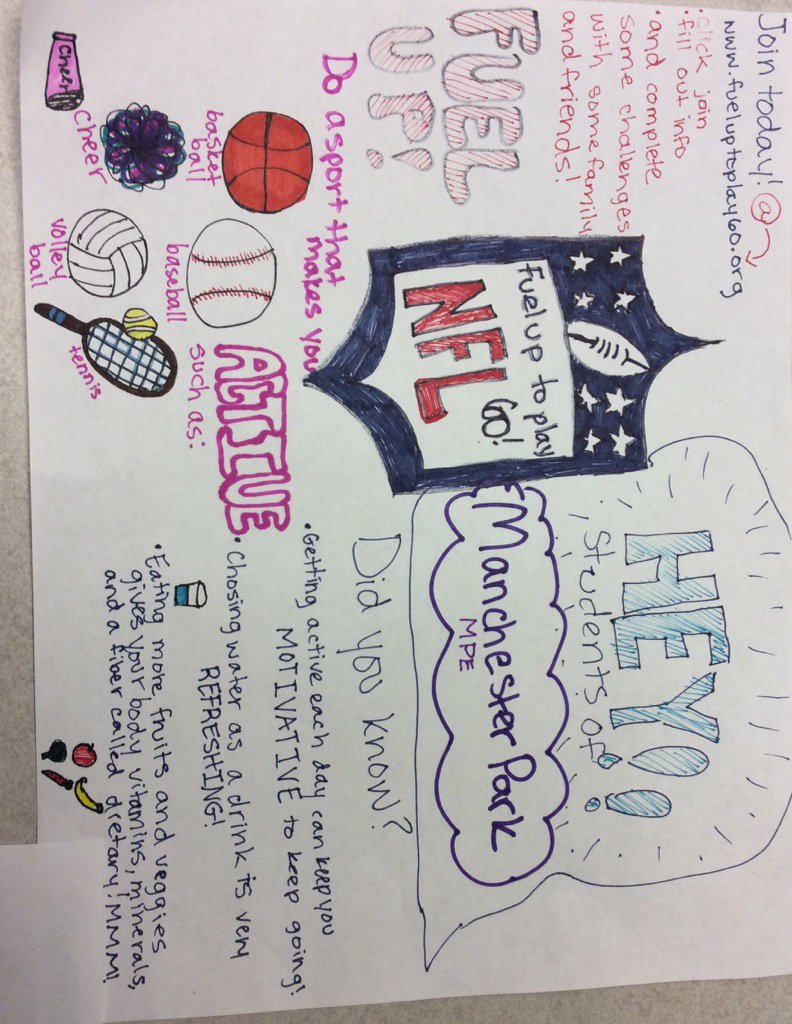 Join today! @
www.fueluptoplay60.org
• click join
fill out info
• and complete
some challenges
with some family
and friends!
FUEL
UP!
fuel up to play
60!
NFL
HEY!!
Students of:
Manchester Park
MPE
Do a sport that
makes you
ACTIVE
such as:
basket
ball
baseball
cheer
cheer
volley
ball
tennis
Did you know?
• Getting active each day can keep you
MOTIVATIVE to keep going!
• Chosing water as a drink is very
REFRESHING!
• Eating more fruits and veggies
gives your body vitamins, minerals,
and a fiber called dietary! MMM!